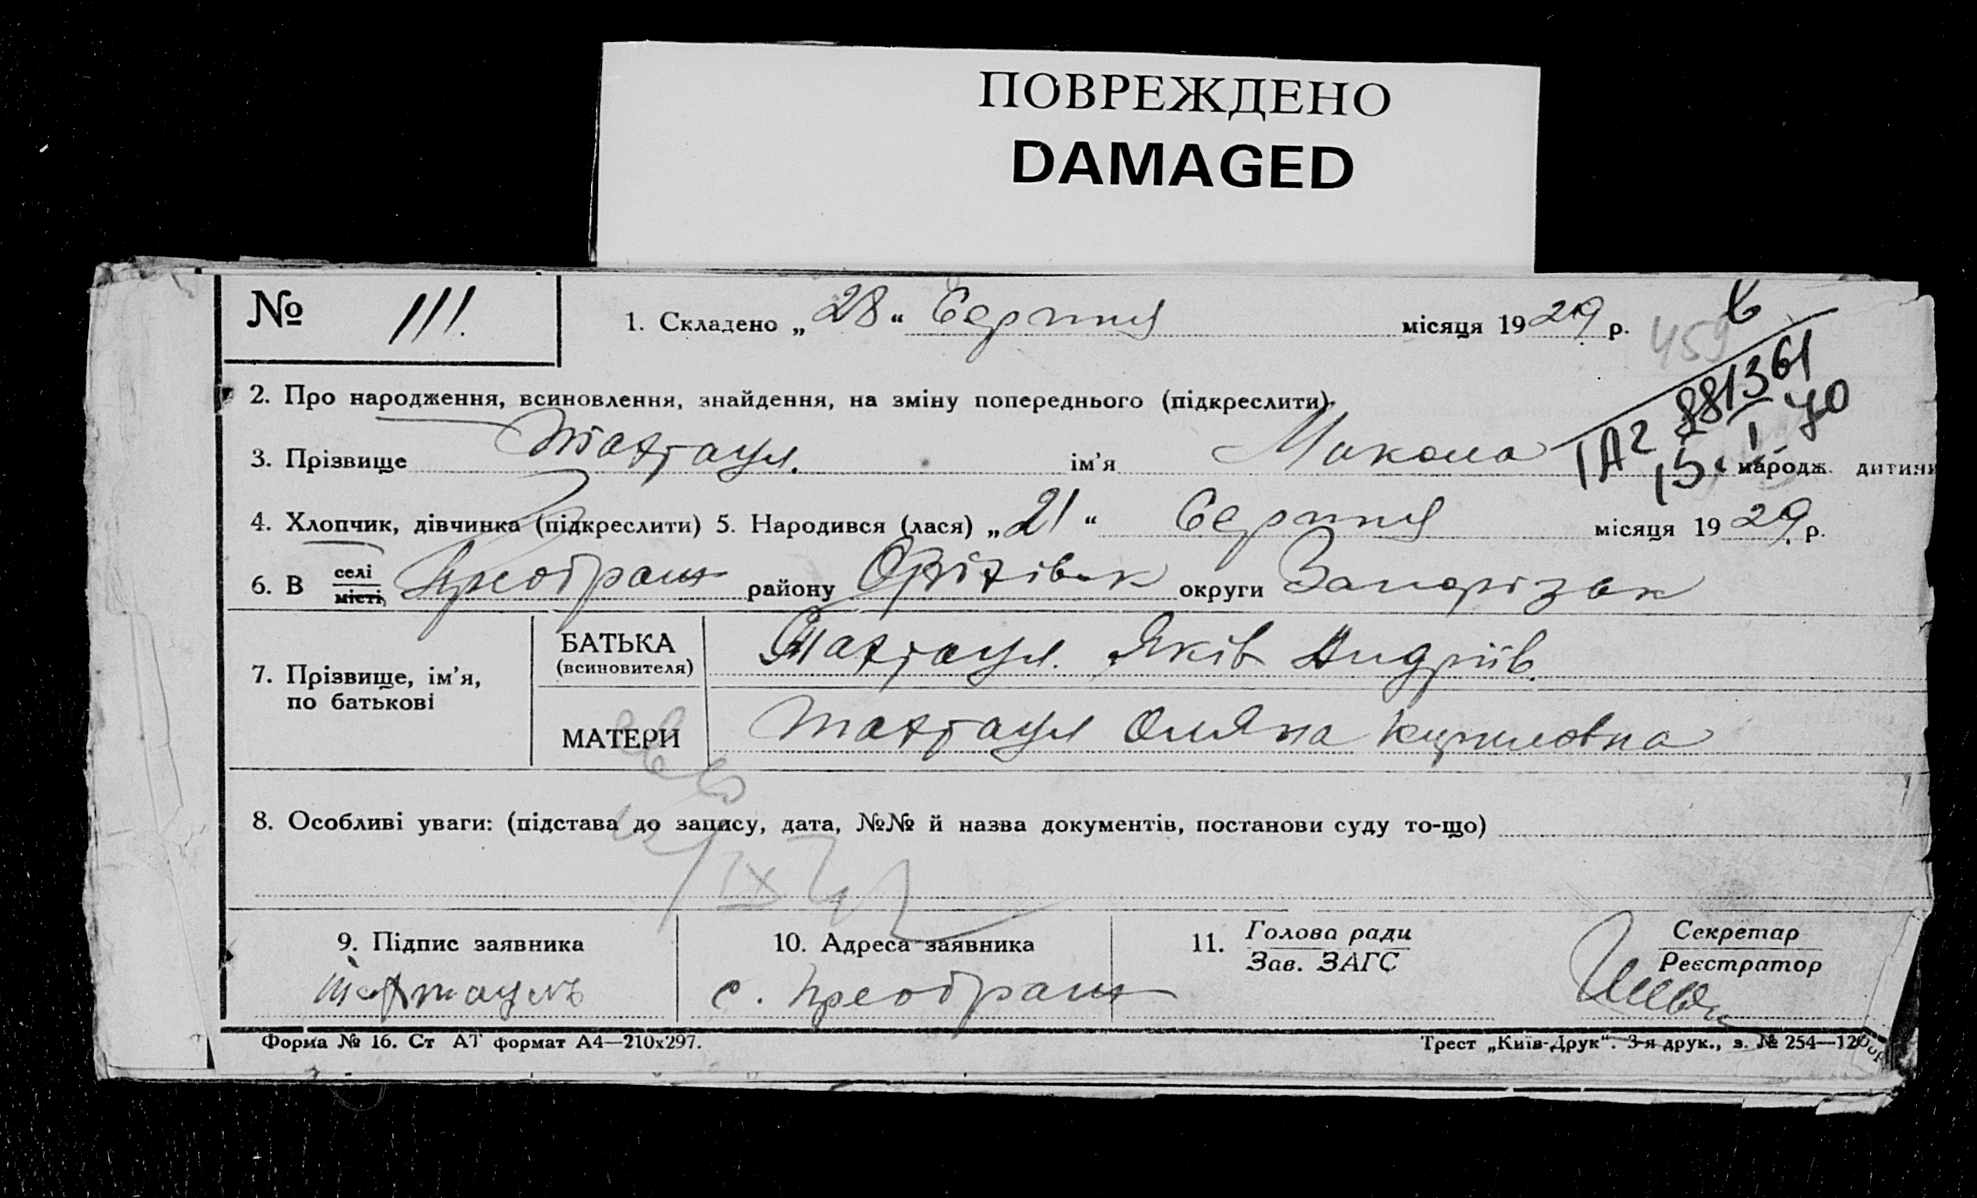 ПОВРЕЖДЕНО
DAMAGED
№ 111.
1. Складено „28“ Серпня місяця 1929 р.
459
ІАГ 881361
15. І 70
2. Про народження, всиновлення, знайдення, на зміну попереднього (підкреслити).
3. Прізвище Тахтаул. ім'я Микола народж. дитини
4. Хлопчик, дівчинка (підкреслити) 5. Народився (лася) „21“ Серпня місяця 1929 р.
6. В селі місті, Преображ району Оріхівск округи Запорізьк
7. Прізвище, ім'я, по батькові
БАТЬКА (всиновителя) Тахтаул. Яків Андріїв.
МАТЕРИ Тахтаул Оляна Кириловна
8. Особливі уваги: (підстава до запису, дата, №№ й назва документів, постанови суду то-що)
9. Підпис заявника
10. Адреса заявника
11. Голова ради Зав. ЗАГС
Секретар Реєстратор
Тахтаулъ
с. Преображ
Форма № 16. Ст АТ формат А4—210х297.
Трест „Київ-Друк“. 3-я друк., з. № 254—12